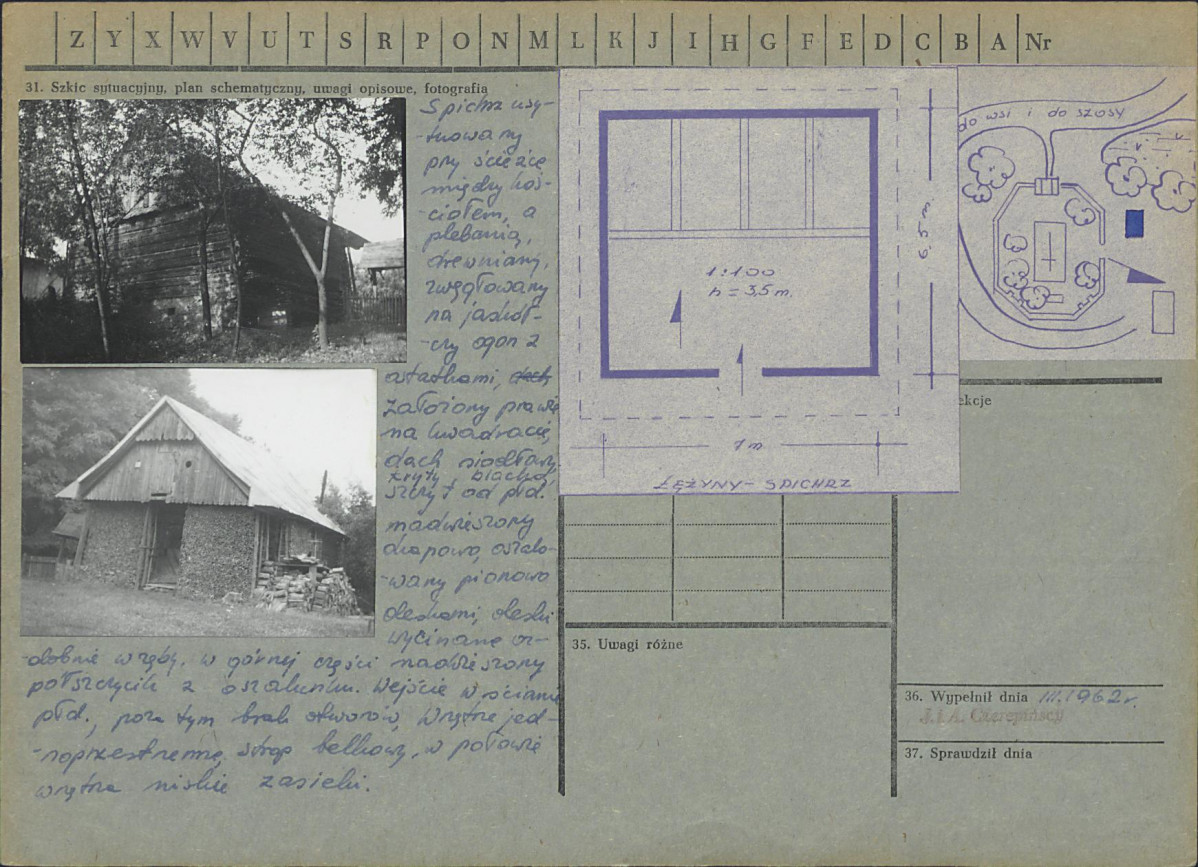 Z Y X W V U T S R P O N M L K J I H G F E D C B A Nr
31. Szkic sytuacyjny, plan schematyczny, uwagi opisowe, fotografia
Spichrz usy-
-tuowany
przy ścieżce
między koś-
-ciołem, a
plebanią,
drewniany,
zwęgłowany
na jaskół-
-czy ogon z
ostatkami, dach
założony prawie
na kwadracie,
dach siodłowy,
kryty blachą,
szczyt od płd.
nadwieszony
okapowo, oszalo-
-wany pionowo
deskami, deski
wycinane oz-
-dobnie w zęby, w górnej części nadwieszony
półszczycik z oszalunkiem. Wejście w ścianie
płd., poza tym brak otworów, Wnętrze jed-
-noprzestrzenne, strop belkowy, w połowie
wnętrza niskie zasieki.
1:100
h = 3,5 m.
6,5 m.
7 m
ŁĘŻYNY - SPICHRZ
do wsi i do szosy
ekcje
35. Uwagi różne
36. Wypełnił dnia III.1962 r.
J. i A. Czerepińscy
37. Sprawdził dnia